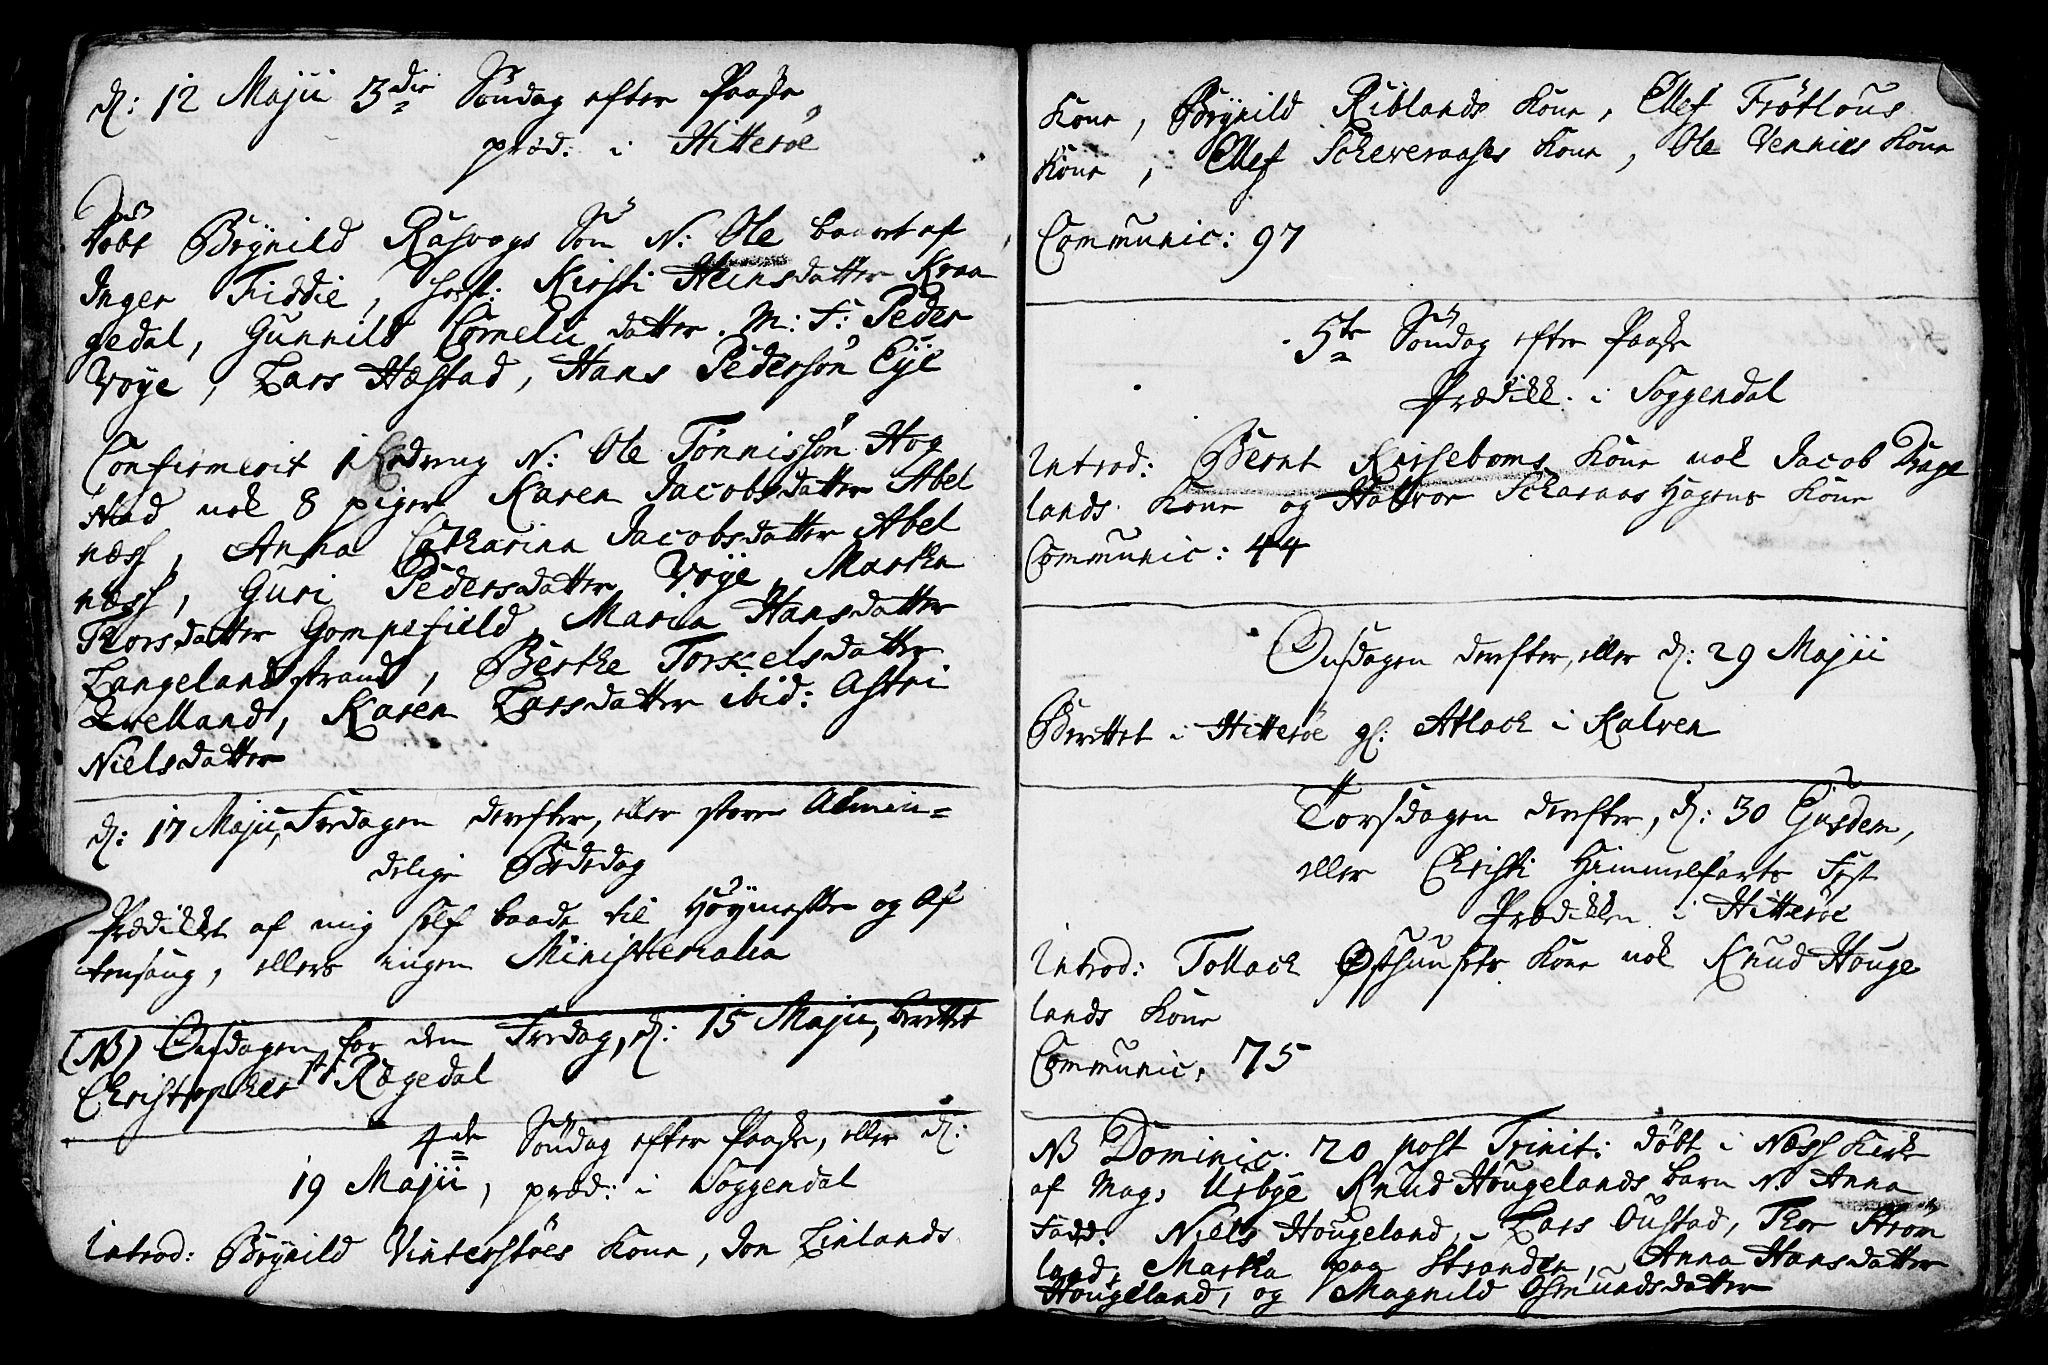 d: 12 Maji 3die Söndag efter Paaske
præd: i Hitteröe
Döbt Brynild Rasvogs Sön N: Ole baaret af
Inger Fiddie, Kirsti Heinsdatter Kraa
gedal, Gunnild Cornelii datter. M: F: Peder
Vöye, Lars Hæstad, Hans Pedersön Eÿe
Confirmerit 1 N: Ole Tönnissön Hog
stad nok 8 piger Karen Jacobsdatter Abel
næss, Anna Catharina Jacobsdatter Abel
næss, Guri Pedersdatter Vöye, Martha
Thorsdatter Gompefield, Maria Hansdatter
Langelandstrand, Berthe Torkelsdatter
Qvelland, Karen Larsdatter ibid: Astri
Nielsdatter
d: 17 Maji, Fredagen derefter, eller store Almin=
delige Bededag
Prædiket af mig self baade til Höymesse og Af
tensang, ellers ingen Ministerialia
(NB) Onsdagen for dem Fredag, d: 15 Maji, berettet
Christopher Rægedal
4de Söndag efter Paaske, eller d:
19 Maji, præd: i Soggendal
Introd: Brynild Vinterstöes Kone, Jon Linlands
Kone, Brynild Riblands Kone, Ellef Frötlous
Kone, Ellef Scheveraases Kone, Ole Vennies Kone
Communic: 97
5te Söndag efter Paaske
Prædik. i Soggendal
Introd: Bernt Kirseboms Kone nok Jacob Drage
lands Kone og Halvor Scharaas Hagens Kone
Communic: 44
Onsdagen derefter, eller d: 29 Maji
Berettet i Hitteröe gl: Atlack i Kalven
Torsdagen derefter, d: 30 Ejusdem,
eller Christi Himmelfarts Fest
Prædikken i Hitteröe
Introd: Tollack Østhuuses Kone nok Knud Houge
lands Kone
Communic. 75
NB Dominic. 20 post Trinit: döbt i Næss Kirke
af Mag. Urbye Knud Hougelands barn N. Anna
Fadd. Niels Hougeland, Lars Oustad, Thor Ström
land, Martha paa Stranden, Anna Hansdatter
Hougeland, og Magnild Osmundsdatter